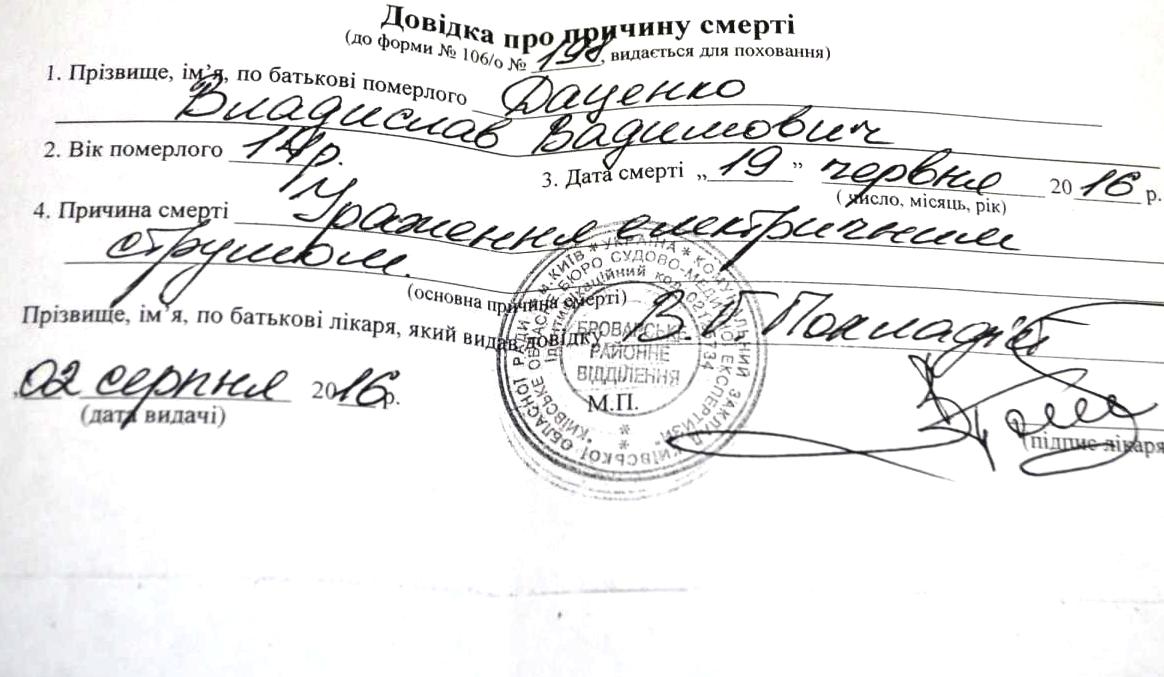 Довідка про причину смерті
(до форми № 106/о № 198, видається для поховання)
1. Прізвище, ім'я, по батькові померлого Даценко
Владислав Вадимович
2. Вік померлого 14 р. 3. Дата смерті „ 19 ” червня 20 16 р.
( число, місяць, рік)
4. Причина смерті Ураження електричним
струмом.
(основна причина смерті)
Прізвище, ім'я, по батькові лікаря, який видав довідку В.Г.
„02 серпня 2016р.
(дата видачі)
М.П.
(підпис лікаря
* УКРАЇНА * КОМУНАЛЬНИЙ ЗАКЛАД КИЇВСЬКОЇ ОБЛАСНОЇ РАДИ
"КИЇВСЬКЕ ОБЛАСНЕ БЮРО СУДОВО-МЕДИЧНОЇ ЕКСПЕРТИЗИ"
Ідентифікаційний код
БРОВАРСЬКЕ
РАЙОННЕ
ВІДДІЛЕННЯ